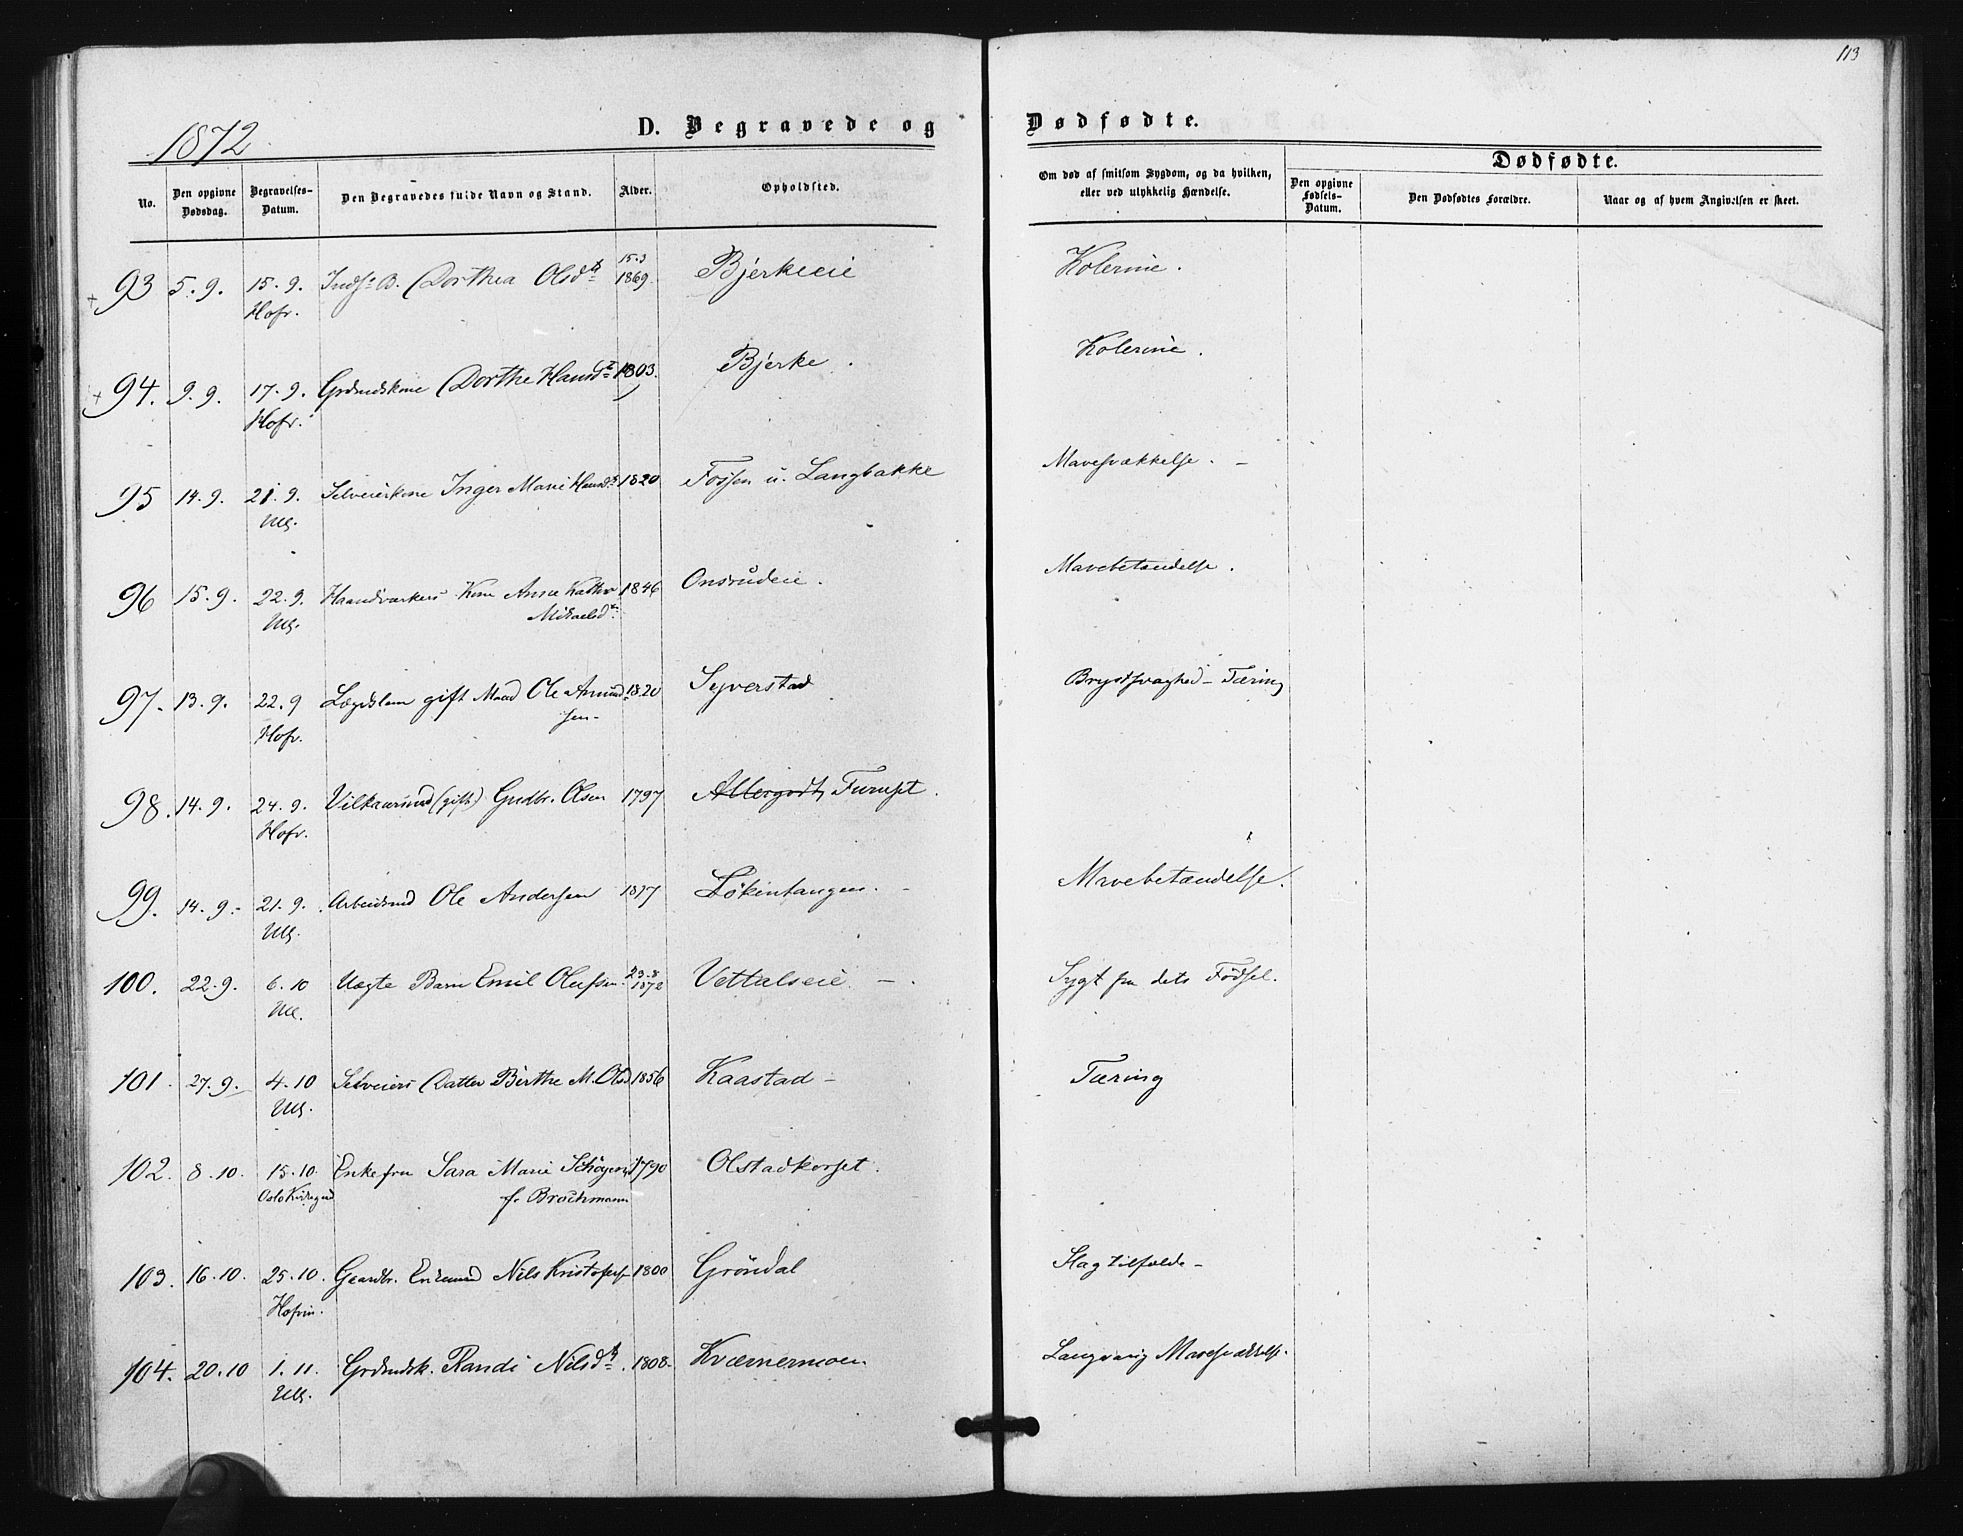 113
1872
D. Begravede og Dødfødte.
No.
Den opgivne Dødsdag.
Begravelses-Datum.
Den Begravedes fulde Navn og Stand.
Alder.
Opholdsted.
Om død af smitsom Sygdom, og da hvilken, eller ved ulykkelig Hændelse.
Dødfødte.
Den opgivne Fødsels-Datum.
Den Dødfødtes Forældre.
Naar og af hvem Angivelsen er skeet.
93 5.9. 15.9. Hofv. Inds. B. Dorthea Olsdt 15.3 1869 Bjerkeeie Kolerine.
94. 9.9. 17.9. Hofv. Grdmdskone Dorthe Hansdt 1803. Bjerke. Kolerine.
95 14.9. 21.9. Ull. Selveierkone Inger Marie Hansdt 1820 Fossen u. Langbakke Mavesvækkelse. –
96 15.9. 22.9. Ull. Haandværkers Kone Anne Kathr. Mikaelsdt. 1846 Onsrudeie. Mavebetændelse.
97. 13.9. 22.9 Hofv. Lægdslem gift Mand Ole Amundsen 1820 Syverstad Brystsvaghed – Tæring
98. 14.9. 24.9. Hofv. Vilkaarsmd (gift) Gudbr. Olsen 1797 Allergodt, Furuset.
99. 14.9. 21.9. Ull. Arbeidsmd Ole Andersen 1817 Løkentangen. – Mavebetændelse.
100. 22.9. 6.10 Ull. Uægte Barn Emil Olufsen 23.8 1872 Vettalseie – Sygt fra dets Fødsel.
101. 27.9. 4.10 Ull. Selveiers Datter Birthe M. Olsd 1856 Kaastad – Tæring
102. 8.10. 15.10. Oslo Kirkegrd Enkefru Sara Marie Schøyen f. Brochmann 1790 Olstadkorset.
103. 16.10. 25.10. Hofvin. Gaardbr. Enkemd Nils Kristofersen 1800 Grøndal Slagtilfælde –
104. 20.10 1.11. Ull. Grdmdsk. Randi Nilsdt. 1808. Kværnermoen Langvarig Mavesvækkelse.